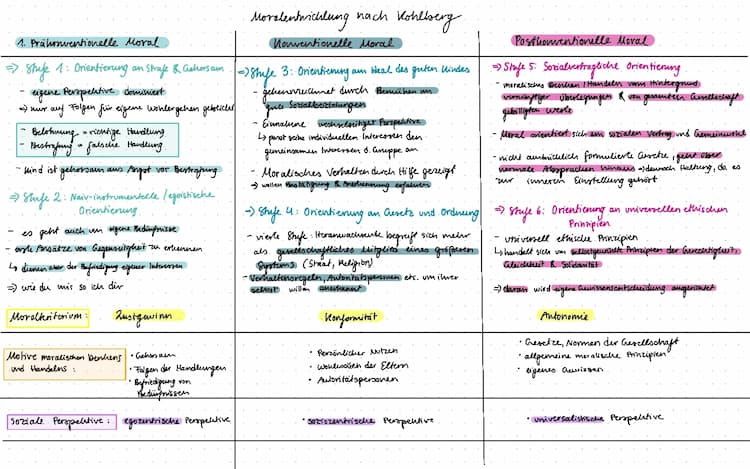 Moralentwicklung nach Kohlberg
1. Präkonventionelle Moral
⇒ Stufe 1: Orientierung an Strafe & Gehorsam
- eigene Perspektive dominiert
→ nur auf Folgen für eigene Wohlergehen geblickt
- Belohnung = richtige Handlung
- Bestrafung = falsche Handlung
- Kind ist gehorsam aus Angst vor Bestrafung
⇒ Stufe 2: Naiv-instrumentelle / egoistische
Orientierung
- es geht auch um eigene Bedürfnisse
- erste Ansätze von Gegenseitigkeit zu erkennen
↳ dienen aber der Befriedigung eigener Interessen
⇒ wie du mir so ich dir
Moralkriterium: Lustgewinn
Motive moralischen Denkens
und Handelns:
• Gehorsam
• Folgen der Handlungen
• Befriedigung von
Bedürfnissen
Soziale Perspektive: egozentrische Perspektive
Konventionelle Moral
⇒ Stufe 3: Orientierung am Ideal des guten Kindes
- gekennzeichnet durch Bemühen an
gute Sozialbeziehungen
- Einnahme wechselseitiger Perspektive
↳ passt seine individuellen Interessen den
gemeinsamen Interessen d. Gruppe an
- Moralisches Verhalten durch Hilfe gezeigt
→ wollen Bestätigung & Anerkennung erfahren
→ Stufe 4: Orientierung an Gesetz und Ordnung
- vierte Stufe: Heranwachsende begreift sich mehr
als gesellschaftliches Mitglied eines größeren
Systems (Staat, Religion)
- Verhaltensregeln, Autoritätspersonen etc. um ihrer
selbst willen anerkannt
Konformität
• Persönlicher Nutzen
• Wohlwollen der Eltern
• Autoritätspersonen
• soziozentrische Perspektive
Postkonventionelle Moral
⇒ Stufe 5: Sozialvertragliche Orientierung
- moralisches Denken/Handeln vom Hintergrund
vernünftiger Überlegungen & von gesamten Gesellschaft
gebilligten Werte
- Moral orientiert sich am sozialen Vertrag und Gemeinwohl
- nicht ausdrücklich formulierte Gesetze, geht über
normale Absprachen hinaus → dennoch Haltung, da es
zur inneren Einstellung gehört
⇒ Stufe 6: Orientierung an universellen ethischen
Prinzipien
- universell ethische Prinzipien
↳ handelt sich um selbstgewählte Prinzipien der Gerechtigkeit,
Gleichheit & Solidarität
⇒ daran wird eigene Gewissensentscheidung ausgerichtet
Autonomie
• Gesetze, Normen der Gesellschaft
• allgemeine moralische Prinzipien
• eigenes Gewissen
• universalistische Perspektive